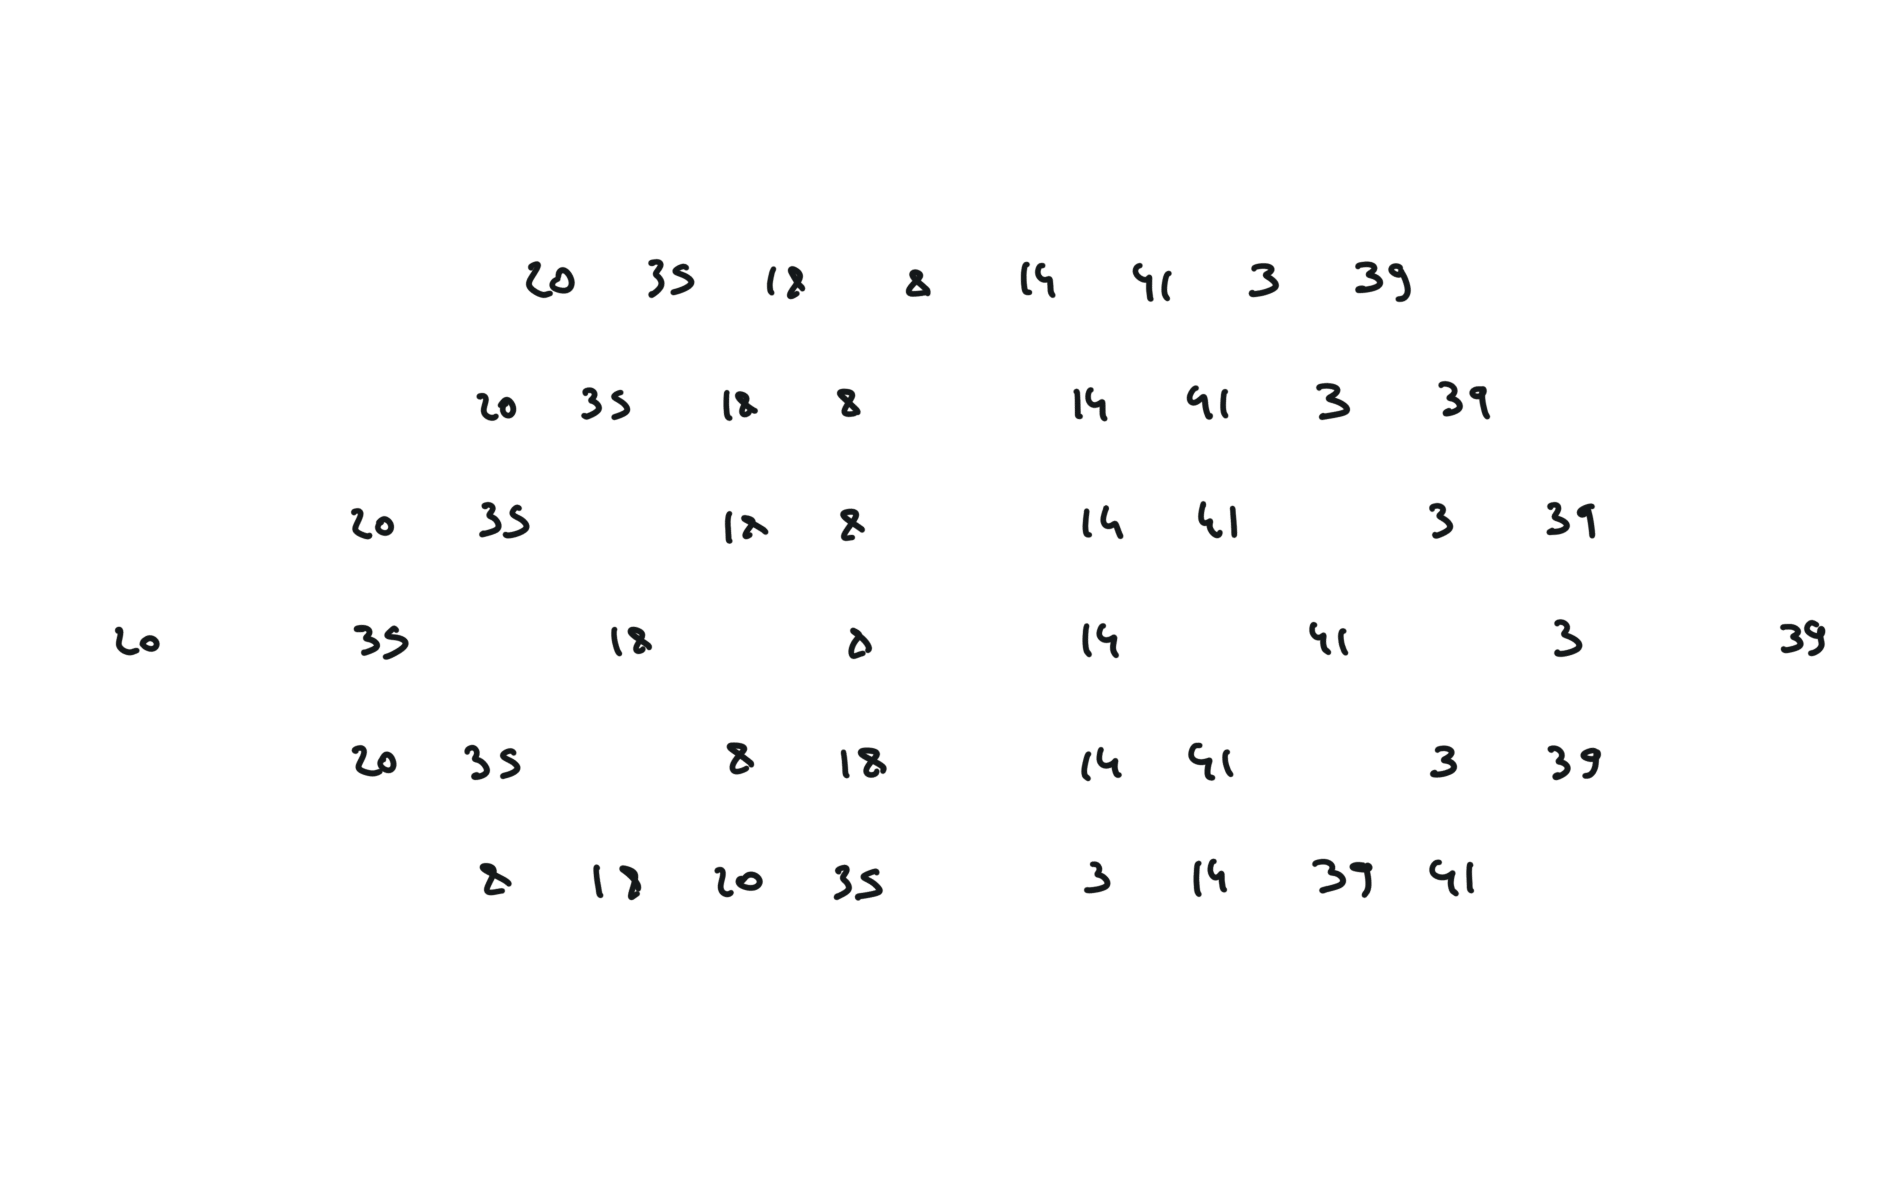 20 35 18 8 14 41 3 39
20 35 18 8 14 41 3 39
20 35 18 8 14 41 3 39
20 35 18 8 14 41 3 39
20 35 8 18 14 41 3 39
8 18 20 35 3 14 39 41